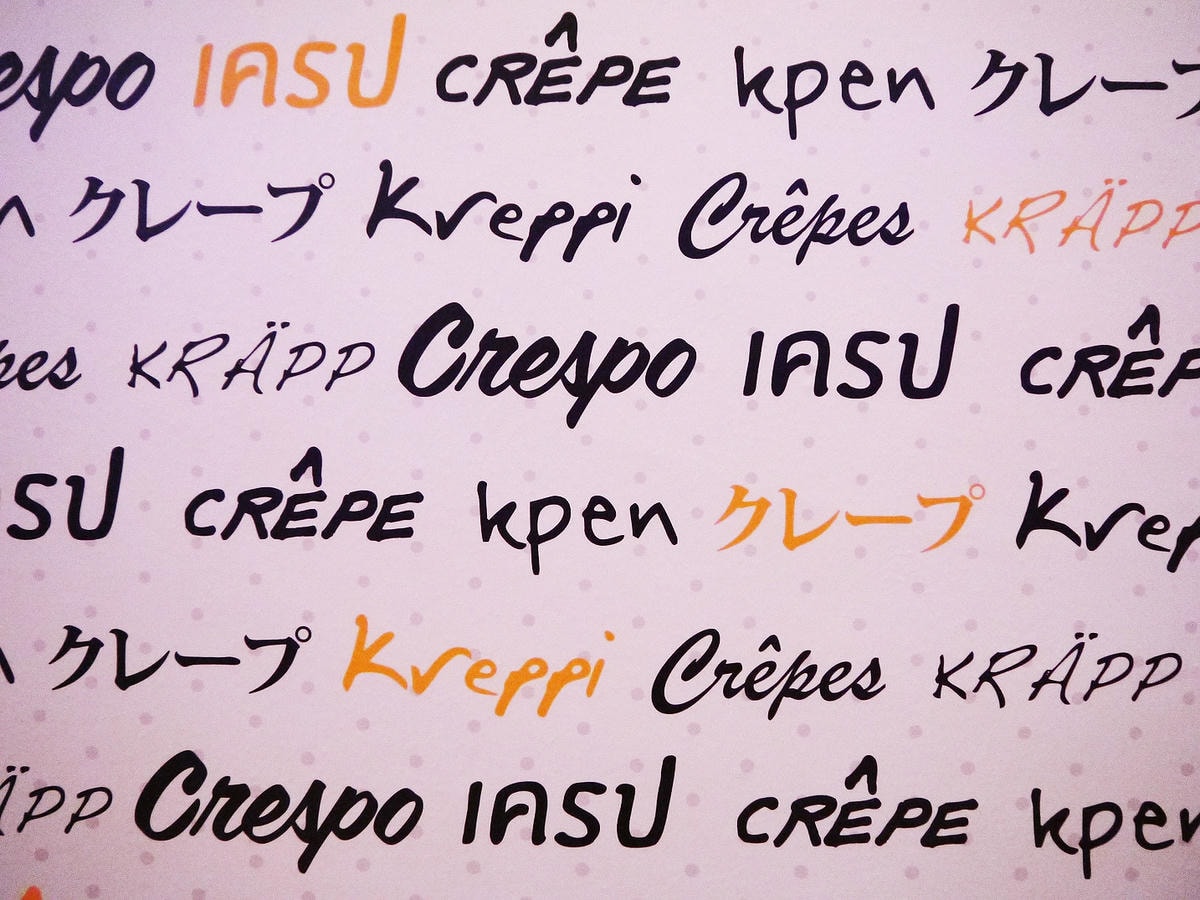 espo เครป CRÊPE kpen クレープ
クレープ Kreppi Crêpes KRÄPP
pes KRÄPP Crespo เครป CRÊP
รป CRÊPE kpen クレープ Krep
クレープ Kreppi Crêpes KRÄPP
ÄPP Crespo เครป CRÊPE kpen